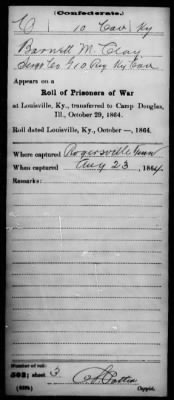 (Confederate.)
C 10 Cav Ky
Barnett M. Clay
Sergt Co G 10 Reg Ky Cav
Appears on a
Roll of Prisoners of War
at Louisville, Ky., transferred to Camp Douglas,
Ill., October 29, 1864.
Roll dated Louisville, Ky., October —, 1864.
Where captured Rogersville Tenn
When captured Aug 23, 1864.
Remarks:
Number of roll:
302; sheet 3
Copyist.